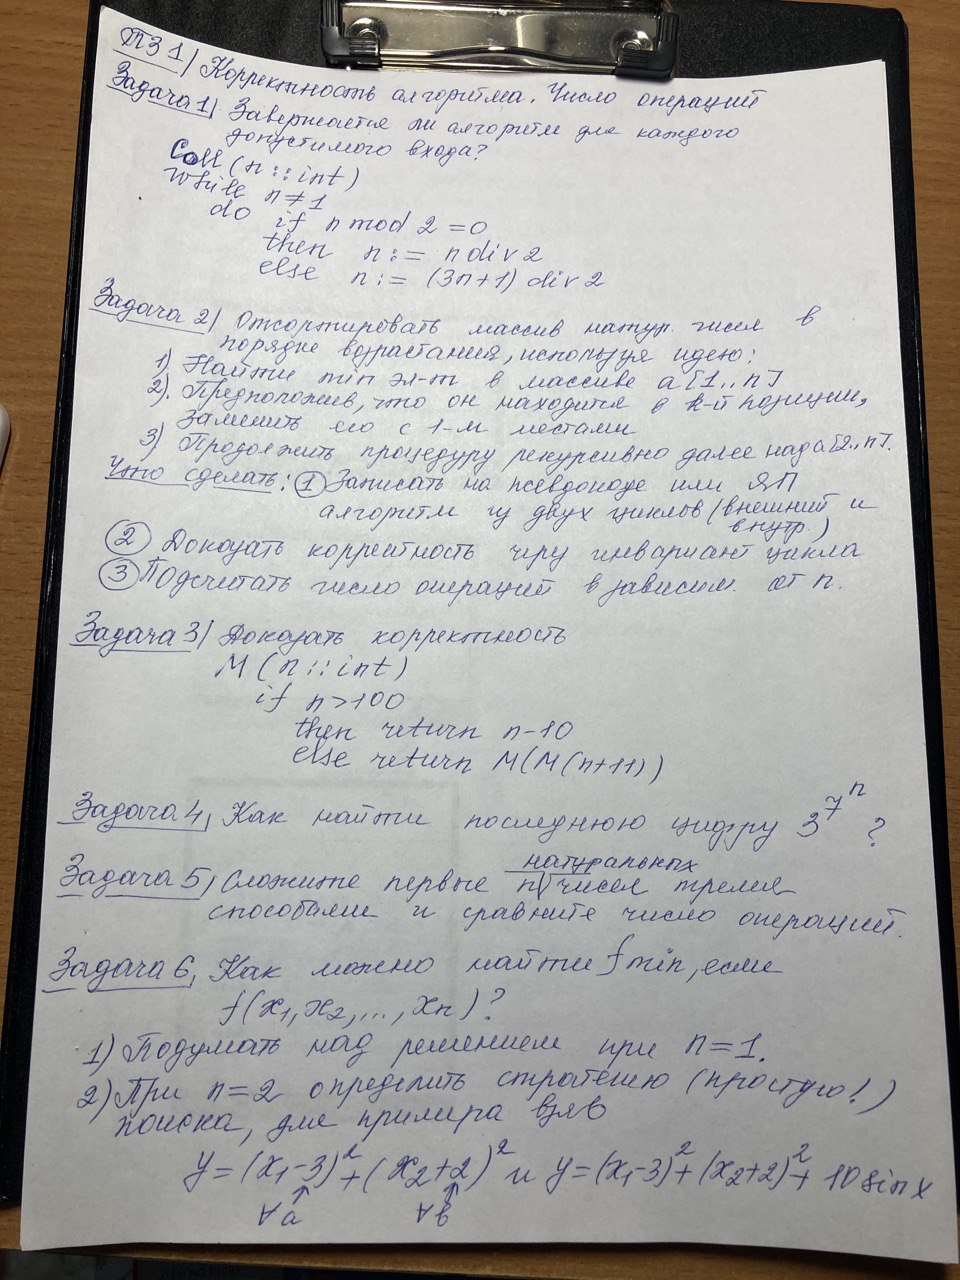 ПЗ 1 Корректность алгоритма. Число операций
Задача 1 Завершается ли алгоритм для каждого
допустимого входа?
Coll (n :: int)
while n ≠ 1
do if n mod 2 = 0
then n := n div 2
else n := (3n+1) div 2
Задача 2 Отсортировать массив натур. чисел в
порядке возрастания, используя идею:
1) Найти min эл-т в массиве a[1..n]
2). Предположив, что он находится в k-й позиции,
заменить его с 1-м местами
3) Продолжить процедуру рекурсивно далее над a[2..n].
Что сделать: ① Записать на псевдокоде или ЯП
алгоритм из двух циклов (внешний и
внутр.)
② Доказать корректность через инвариант цикла
③ Подсчитать число операций в зависим. от n.
Задача 3 Доказать корректность
M (n :: int)
if n > 100
then return n-10
else return M(M(n+11))
Задача 4, Как найти последнюю цифру 3^7^n ?
натуральных
Задача 5, Сложите первые n чисел тремя
способами и сравните число операций.
Задача 6, Как можно найти f min, если
f(x1, x2, ..., xn)?
1) Подумать над решением при n=1.
2) При n=2 определить стратегию (простую!)
поиска, для примера взяв
y = (x1-3)² + (x2+2)² и y = (x1-3)² + (x2+2)² + 10 sin x
∀ a ∀ b